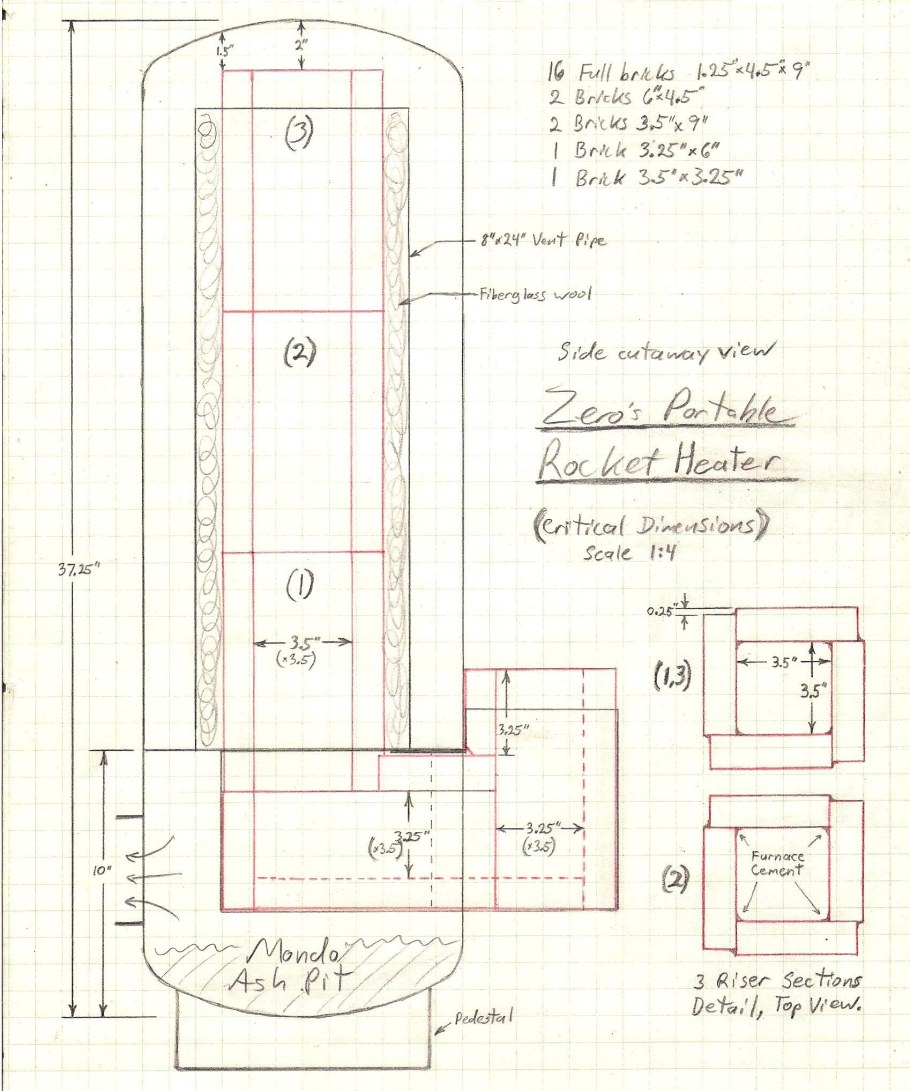 1.5"
2"
16 Full bricks 1.25"x4.5"x9"
2 Bricks 6"x4.5"
2 Bricks 3.5"x9"
1 Brick 3.25"x6"
1 Brick 3.5"x3.25"
(3)
8"x24" Vent Pipe
Fiberglass wool
(2)
Side cutaway view
Zero's Portable
Rocket Heater
(Critical Dimensions)
Scale 1:4
37.25"
(1)
3.5"
(x3.5)
0.25"
(1,3)
3.5"
3.5"
3.25"
3.25"
(x3.5)
3.25"
(x3.5)
10"
(2)
Furnace
Cement
Mondo
Ash Pit
3 Riser Sections
Detail, Top View.
Pedestal